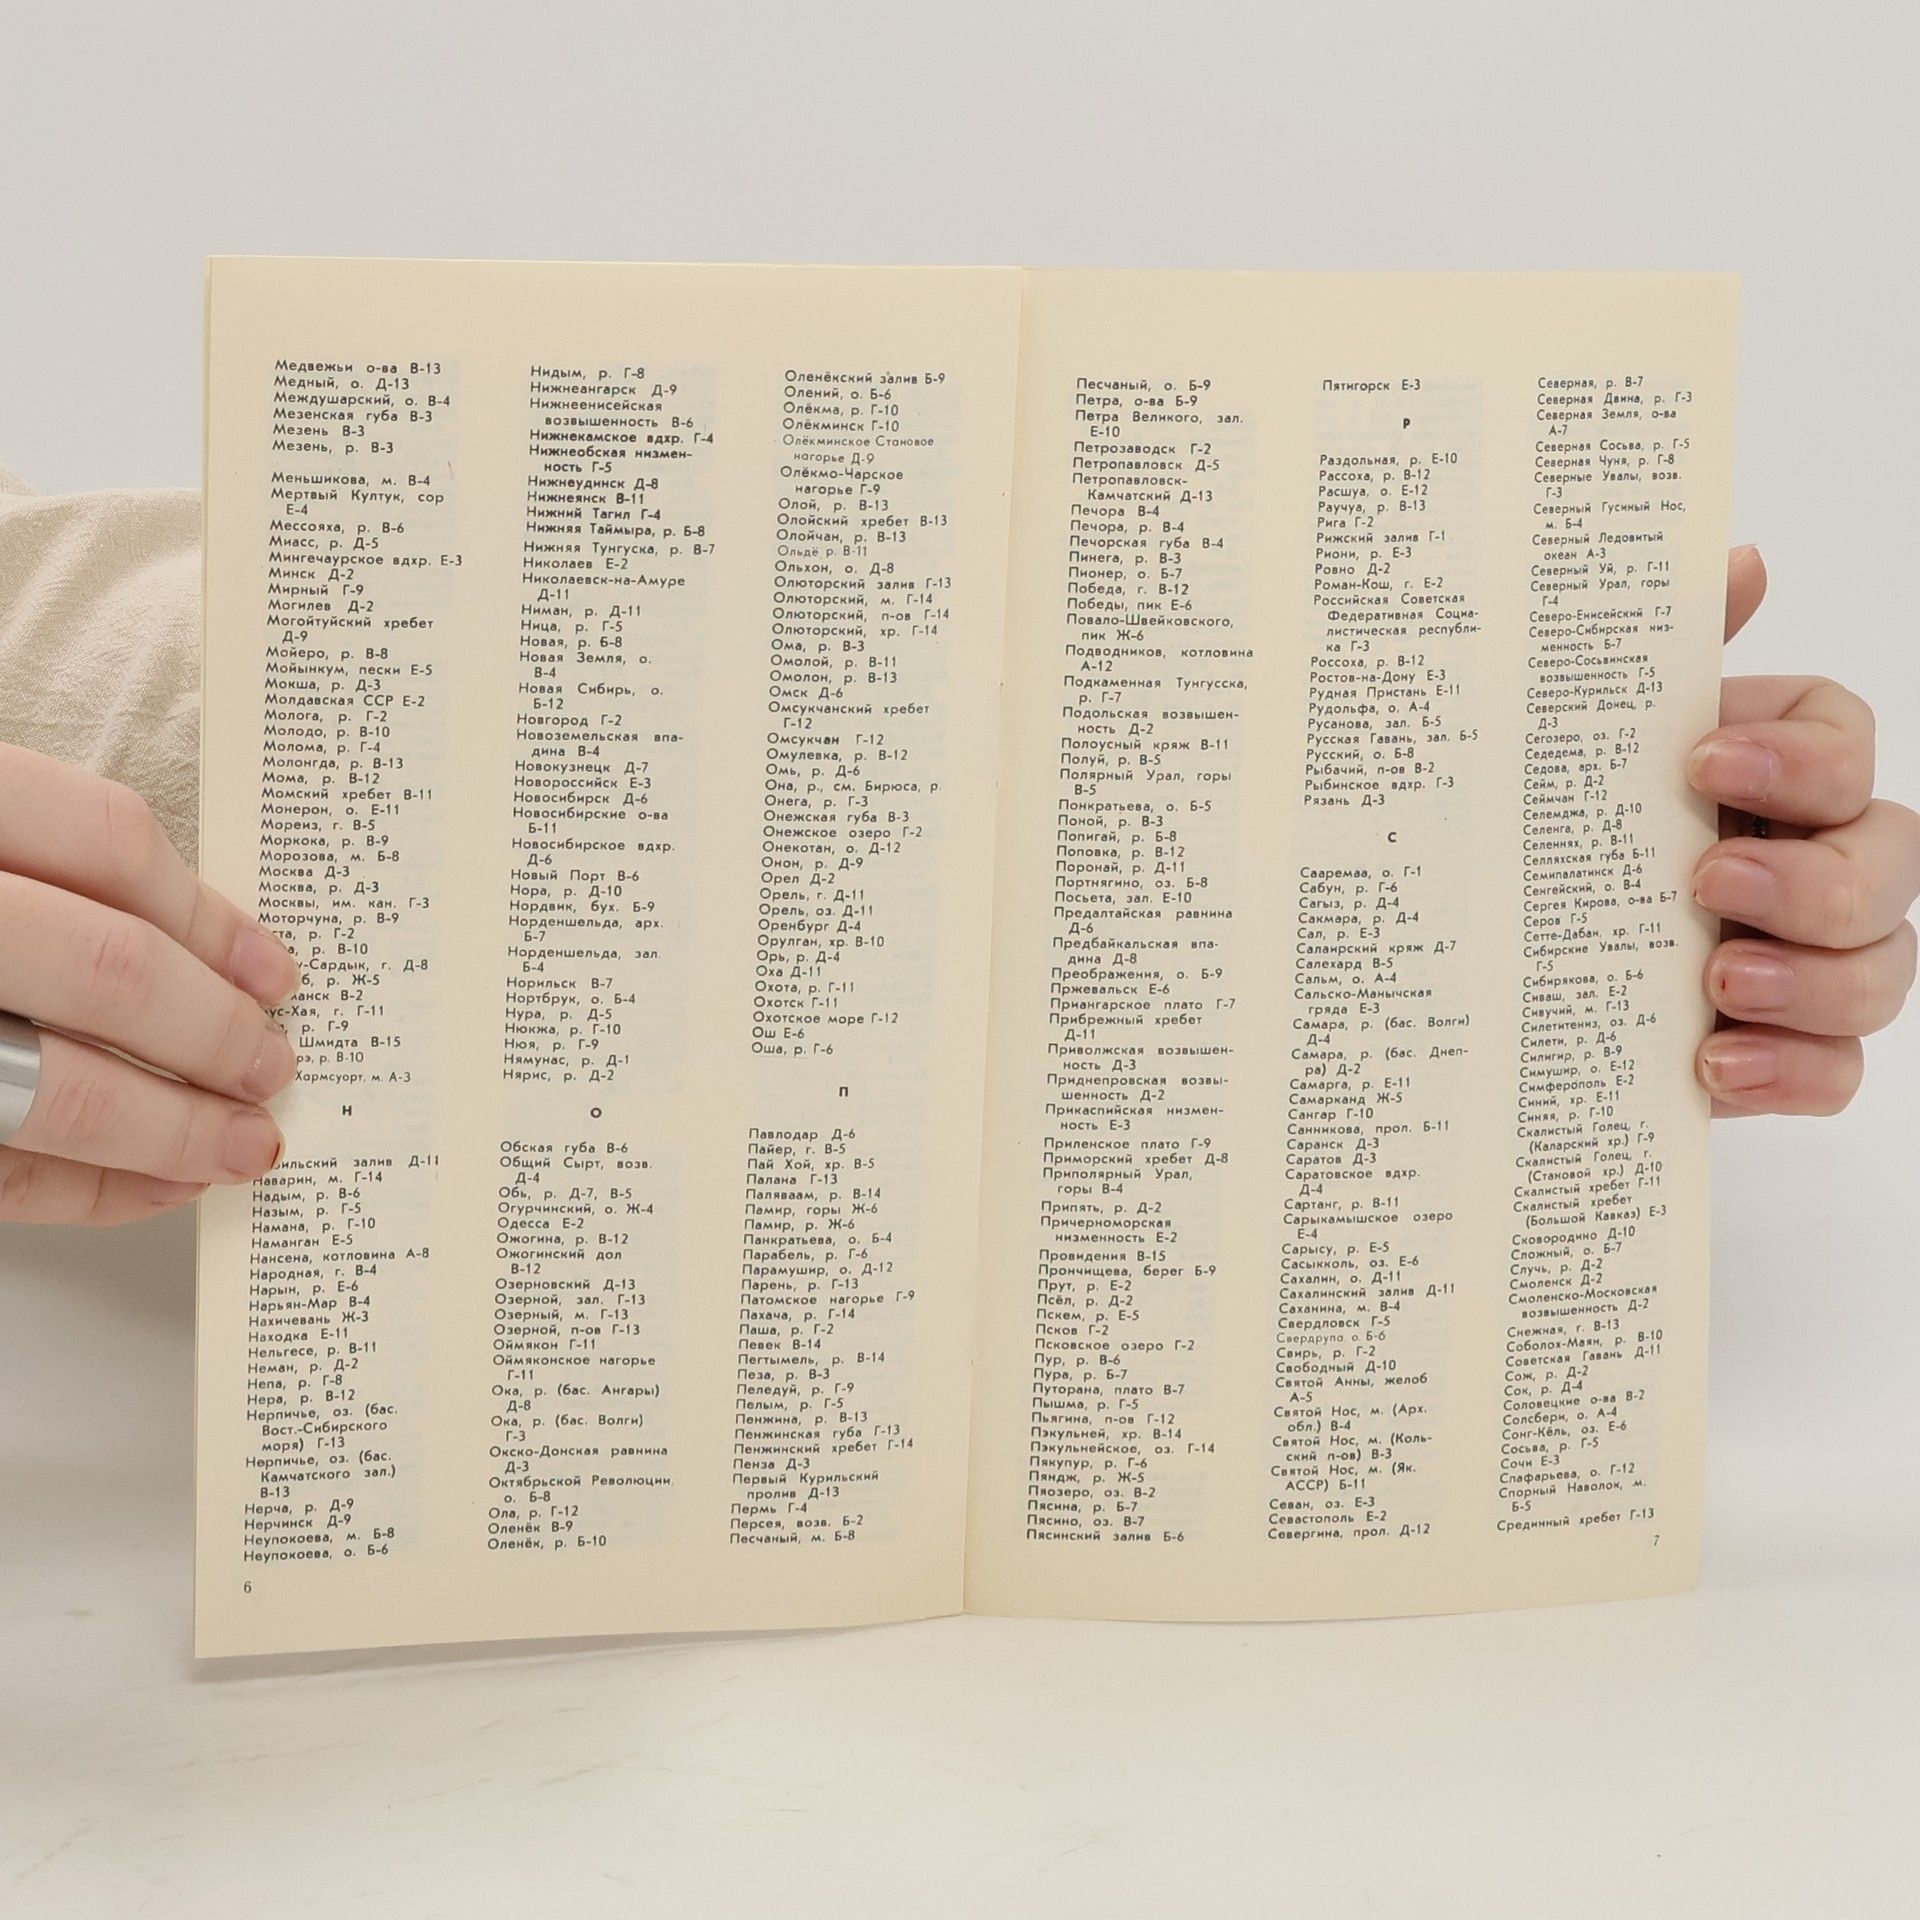 Медвежьи о-ва В-13
Медный, о. Д-13
Междушарский, о. В-4
Мезенская губа В-3
Мезень В-3
Мезень, р. В-3
Меньшикова, м. В-4
Мертвый Култук, сор
Е-4
Мессояха, р. В-6
Миасс, р. Д-5
Мингечаурское вдхр. Е-3
Минск Д-2
Мирный Г-9
Могилев Д-2
Могойтуйский хребет
Д-9
Мойеро, р. В-8
Мойынкум, пески Е-5
Мокша, р. Д-3
Молдавская ССР Е-2
Молога, р. Г-2
Молодо, р. В-10
Молома, р. Г-4
Молонгда, р. В-13
Мома, р. В-12
Момский хребет В-11
Монерон, о. Е-11
Мореиз, г. В-5
Моркока, р. В-9
Морозова, м. Б-8
Москва Д-3
Москва, р. Д-3
Москвы, им. кан. Г-3
Моторчуна, р. В-9
р. Г-2
р. В-10
Сардык, г. Д-8
р. Ж-5
В-2
Хая, г. Г-11
р. Г-9
Шмидта В-15
р. В-10
Хармсуорт, м. А-3
Н
залив Д-11
Наварин, м. Г-14
Надым, р. В-6
Назым, р. Г-5
Намана, р. Г-10
Наманган Е-5
Нансена, котловина А-8
Народная, г. В-4
Нарын, р. Е-6
Нарьян-Мар В-4
Нахичевань Ж-3
Находка Е-11
Нельгесе, р. В-11
Неман, р. Д-2
Непа, р. Г-8
Нера, р. В-12
Нерпичье, оз. (бас.
Вост.-Сибирского
моря) Г-13
Нерпичье, оз. (бас.
Камчатского зал.)
В-13
Нерча, р. Д-9
Нерчинск Д-9
Неупокоева, м. Б-8
Неупокоева, о. Б-6
6
Нидым, р. Г-8
Нижнеангарск Д-9
Нижнеенисейская
возвышенность В-6
Нижнекамское вдхр. Г-4
Нижнеобская низмен-
ность Г-5
Нижнеудинск Д-8
Нижнеянск В-11
Нижний Тагил Г-4
Нижняя Таймыра, р. Б-8
Нижняя Тунгуска, р. В-7
Николаев Е-2
Николаевск-на-Амуре
Д-11
Ниман, р. Д-11
Ница, р. Г-5
Новая, р. Б-8
Новая Земля, о.
В-4
Новая Сибирь, о.
Б-12
Новгород Г-2
Новоземельская впа-
дина В-4
Новокузнецк Д-7
Новороссийск Е-3
Новосибирск Д-6
Новосибирские о-ва
Б-11
Новосибирское вдхр.
Д-6
Новый Порт В-6
Нора, р. Д-10
Нордвик, бух. Б-9
Норденшельда, арх.
Б-7
Норденшельда, зал.
Б-4
Норильск В-7
Нортбрук, о. Б-4
Нура, р. Д-5
Нюкжа, р. Г-10
Нюя, р. Г-9
Нямунас, р. Д-1
Нярис, р. Д-2
О
Обская губа В-6
Общий Сырт, возв.
Д-4
Обь, р. Д-7, В-5
Огурчинский, о. Ж-4
Одесса Е-2
Ожогина, р. В-12
Ожогинский дол
В-12
Озерновский Д-13
Озерной, зал. Г-13
Озерный, м. Г-13
Озерной, п-ов Г-13
Оймякон Г-11
Оймяконское нагорье
Г-11
Ока, р. (бас. Ангары)
Д-8
Ока, р. (бас. Волги)
Г-3
Окско-Донская равнина
Д-3
Октябрьской Революции,
о. Б-8
Ола, р. Г-12
Оленёк В-9
Оленёк, р. Б-10
Оленёкский залив Б-9
Олений, о. Б-6
Олёкма, р. Г-10
Олёкминск Г-10
Олёкминское Становое
нагорье Д-9
Олёкмо-Чарское
нагорье Г-9
Олой, р. В-13
Олойский хребет В-13
Олойчан, р. В-13
Ольдё р. В-11
Ольхон, о. Д-8
Олюторский залив Г-13
Олюторский, м. Г-14
Олюторский, п-ов Г-14
Олюторский, хр. Г-14
Ома, р. В-3
Омолой, р. В-11
Омолон, р. В-13
Омск Д-6
Омсукчанский хребет
Г-12
Омсукчан Г-12
Омулевка, р. В-12
Омь, р. Д-6
Она, р., см. Бирюса, р.
Онега, р. Г-3
Онежская губа В-3
Онежское озеро Г-2
Онекотан, о. Д-12
Онон, р. Д-9
Орел Д-2
Орель, г. Д-11
Орель, оз. Д-11
Оренбург Д-4
Орулган, хр. В-10
Орь, р. Д-4
Оха Д-11
Охота, р. Г-11
Охотск Г-11
Охотское море Г-12
Ош Е-6
Оша, р. Г-6
П
Павлодар Д-6
Пайер, г. В-5
Пай Хой, хр. В-5
Палана Г-13
Паляваам, р. В-14
Памир, горы Ж-6
Памир, р. Ж-6
Панкратьева, о. Б-4
Парабель, р. Г-6
Парамушир, о. Д-12
Парень, р. Г-13
Патомское нагорье Г-9
Пахача, р. Г-14
Паша, р. Г-2
Певек В-14
Пегтымель, р. В-14
Пеза, р. В-3
Пеледуй, р. Г-9
Пелым, р. Г-5
Пенжина, р. В-13
Пенжинская губа Г-13
Пенжинский хребет Г-14
Пенза Д-3
Первый Курильский
пролив Д-13
Пермь Г-4
Персея, возв. Б-2
Песчаный, м. Б-8
Песчаный, о. Б-9
Петра, о-ва Б-9
Петра Великого, зал.
Е-10
Петрозаводск Г-2
Петропавловск Д-5
Петропавловск-
Камчатский Д-13
Печора В-4
Печора, р. В-4
Печорская губа В-4
Пинега, р. В-3
Пионер, о. Б-7
Победа, г. В-12
Победы, пик Е-6
Повало-Швейковского,
пик Ж-6
Подводников, котловина
А-12
Подкаменная Тунгусска,
р. Г-7
Подольская возвышен-
ность Д-2
Полоусный кряж В-11
Полуй, р. В-5
Полярный Урал, горы
В-5
Понкратьева, о. Б-5
Поной, р. В-3
Попигай, р. Б-8
Поповка, р. В-12
Поронай, р. Д-11
Портнягино, оз. Б-8
Посьета, зал. Е-10
Предалтайская равнина
Д-6
Предбайкальская впа-
дина Д-8
Преображения, о. Б-9
Пржевальск Е-6
Приангарское плато Г-7
Прибрежный хребет
Д-11
Приволжская возвышен-
ность Д-3
Приднепровская возвы-
шенность Д-2
Прикаспийская низмен-
ность Е-3
Приленское плато Г-9
Приморский хребет Д-8
Приполярный Урал,
горы В-4
Припять, р. Д-2
Причерноморская
низменность Е-2
Провидения В-15
Прончищева, берег Б-9
Прут, р. Е-2
Псёл, р. Д-2
Пскем, р. Е-5
Псков Г-2
Псковское озеро Г-2
Пур, р. В-6
Пура, р. Б-7
Путорана, плато В-7
Пышма, р. Г-5
Пьягина, п-ов Г-12
Пэкульней, хр. В-14
Пэкульнейское, оз. Г-14
Пякупур, р. Г-6
Пяндж, р. Ж-5
Пяозеро, оз. В-2
Пясина, р. Б-7
Пясино, оз. В-7
Пясинский залив Б-6
Пятигорск Е-3
Р
Раздольная, р. Е-10
Рассоха, р. В-12
Расшуа, о. Е-12
Раучуа, р. В-13
Рига Г-2
Рижский залив Г-1
Риони, р. Е-3
Ровно Д-2
Роман-Кош, г. Е-2
Российская Советская
Федеративная Социа-
листическая республи-
ка Г-3
Россоха, р. В-12
Ростов-на-Дону Е-3
Рудная Пристань Е-11
Рудольфа, о. А-4
Русанова, зал. Б-5
Русская Гавань, зал. Б-5
Русский, о. Б-8
Рыбачий, п-ов В-2
Рыбинское вдхр. Г-3
Рязань Д-3
С
Сааремаа, о. Г-1
Сабун, р. Г-6
Сагыз, р. Д-4
Сакмара, р. Д-4
Сал, р. Е-3
Салаирский кряж Д-7
Салехард В-5
Сальм, о. А-4
Сальско-Манычская
гряда Е-3
Самара, р. (бас. Волги)
Д-4
Самара, р. (бас. Днеп-
ра) Д-2
Самарга, р. Е-11
Самарканд Ж-5
Сангар Г-10
Санникова, прол. Б-11
Саранск Д-3
Саратов Д-3
Саратовское вдхр.
Д-4
Сартанг, р. В-11
Сарыкамышское озеро
Е-4
Сарысу, р. Е-5
Сасыкколь, оз. Е-6
Сахалин, о. Д-11
Сахалинский залив Д-11
Саханина, м. В-4
Свердловск Г-5
Свердрупа, о. Б-6
Свирь, р. Г-2
Свободный Д-10
Святой Анны, желоб
А-5
Святой Нос, м. (Арх.
обл.) В-4
Святой Нос, м. (Коль-
ский п-ов) В-3
Святой Нос, м. (Як.
АССР) Б-11
Севан, оз. Е-3
Севастополь Е-2
Севергина, прол. Д-12
Северная, р. В-7
Северная Двина, р. Г-3
Северная Земля, о-ва
А-7
Северная Сосьва, р. Г-5
Северная Чуня, р. Г-8
Северные Увалы, возв.
Г-3
Северный Гусиный Нос,
м. Б-4
Северный Ледовитый
океан А-3
Северный Уй, р. Г-11
Северный Урал, горы
Г-4
Северо-Енисейский Г-7
Северо-Сибирская низ-
менность Б-7
Северо-Сосьвинская
возвышенность Г-5
Северо-Курильск Д-13
Северский Донец, р.
Д-3
Сегозеро, оз. Г-2
Седедема, р. В-12
Седова, арх. Б-7
Сейм, р. Д-2
Сеймчан Г-12
Селемджа, р. Д-10
Селенга, р. Д-8
Селеннях, р. В-11
Селляхская губа Б-11
Семипалатинск Д-6
Сенгейский, о. В-4
Сергея Кирова, о-ва Б-7
Серов Г-5
Сетте-Дабан, хр. Г-11
Сибирские Увалы, возв.
Г-5
Сибирякова, о. Б-6
Сиваш, зал. Е-2
Сивучий, м. Г-13
Силетитениз, оз. Д-6
Силети, р. Д-6
Силигир, р. В-9
Симушир, о. Е-12
Симферополь Е-2
Синий, хр. Е-11
Синяя, р. Г-10
Скалистый Голец, г.
(Каларский хр.) Г-9
Скалистый Голец, г.
(Становой хр.) Д-10
Скалистый хребет Г-11
Скалистый хребет
(Большой Кавказ) Е-3
Сковородино Д-10
Сложный, о. Б-7
Случь, р. Д-2
Смоленск Д-2
Смоленско-Московская
возвышенность Д-2
Снежная, г. В-13
Соболох-Маян, р. В-10
Советская Гавань Д-11
Сож, р. Д-2
Сок, р. Д-4
Соловецкие о-ва В-2
Солсбери, о. А-4
Сонг-Кёль, оз. Е-6
Сосьва, р. Г-5
Сочи Е-3
Спафарьева, о. Г-12
Спорный Наволок, м.
Б-5
Срединный хребет Г-13
7